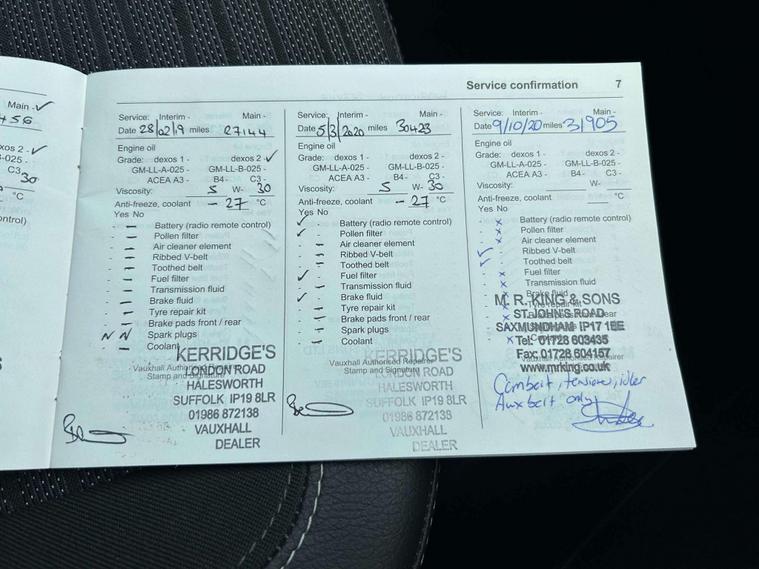 Service confirmation 7
Main - ✓
456
xos 2 - ✓
B-025 -
C3 -
30
°C
ontrol)
Service: Interim - Main -
Date 28/02/19 miles 27144
Engine oil
Grade: dexos 1 - dexos 2 - ✓
GM-LL-A-025 - GM-LL-B-025 -
ACEA A3 - B4 - C3 -
Viscosity: 5 W- 30
Anti-freeze, coolant - 27 °C
Yes No
- – Battery (radio remote control)
- – Pollen filter
- – Air cleaner element
- – Ribbed V-belt
- – Toothed belt
- – Fuel filter
- – Transmission fluid
- – Brake fluid
- – Tyre repair kit
- – Brake pads front / rear
N N Spark plugs
- – Coolant
Vauxhall Authorised Repairer
Stamp and Signature
KERRIDGE'S
LONDON ROAD
HALESWORTH
SUFFOLK IP19 8LR
01986 872138
VAUXHALL
DEALER
Service: Interim - Main -
Date 5/3/2020 miles 30423
Engine oil
Grade: dexos 1 - dexos 2 -
GM-LL-A-025 - GM-LL-B-025 -
ACEA A3 - B4 - C3 -
Viscosity: 5 W- 30
Anti-freeze, coolant - 27 °C
Yes No
✓ - Battery (radio remote control)
✓ - Pollen filter
- – Air cleaner element
- – Ribbed V-belt
- – Toothed belt
✓ - Fuel filter
- – Transmission fluid
✓ - Brake fluid
- – Tyre repair kit
- – Brake pads front / rear
- – Spark plugs
- – Coolant
Vauxhall Authorised Repairer
Stamp and Signature
KERRIDGE'S
LONDON ROAD
HALESWORTH
SUFFOLK IP19 8LR
01986 872138
VAUXHALL
DEALER
Service: Interim - Main -
Date 9/10/20 miles 31905
Engine oil
Grade: dexos 1 - dexos 2 -
GM-LL-A-025 - GM-LL-B-025 -
ACEA A3 - B4 - C3 -
Viscosity: W-
Anti-freeze, coolant °C
Yes No
- x Battery (radio remote control)
- x Pollen filter
- x Air cleaner element
✓ - Ribbed V-belt
✓ - Toothed belt
- x Fuel filter
- x Transmission fluid
Brake fluid
M. R. KING & SONS
ST. JOHN'S ROAD
SAXMUNDHAM IP17 1EE
Tel: 01728 603435
Fax: 01728 604157
www.mrking.co.uk
Cambelt, tensioner, idler
Aux belt only